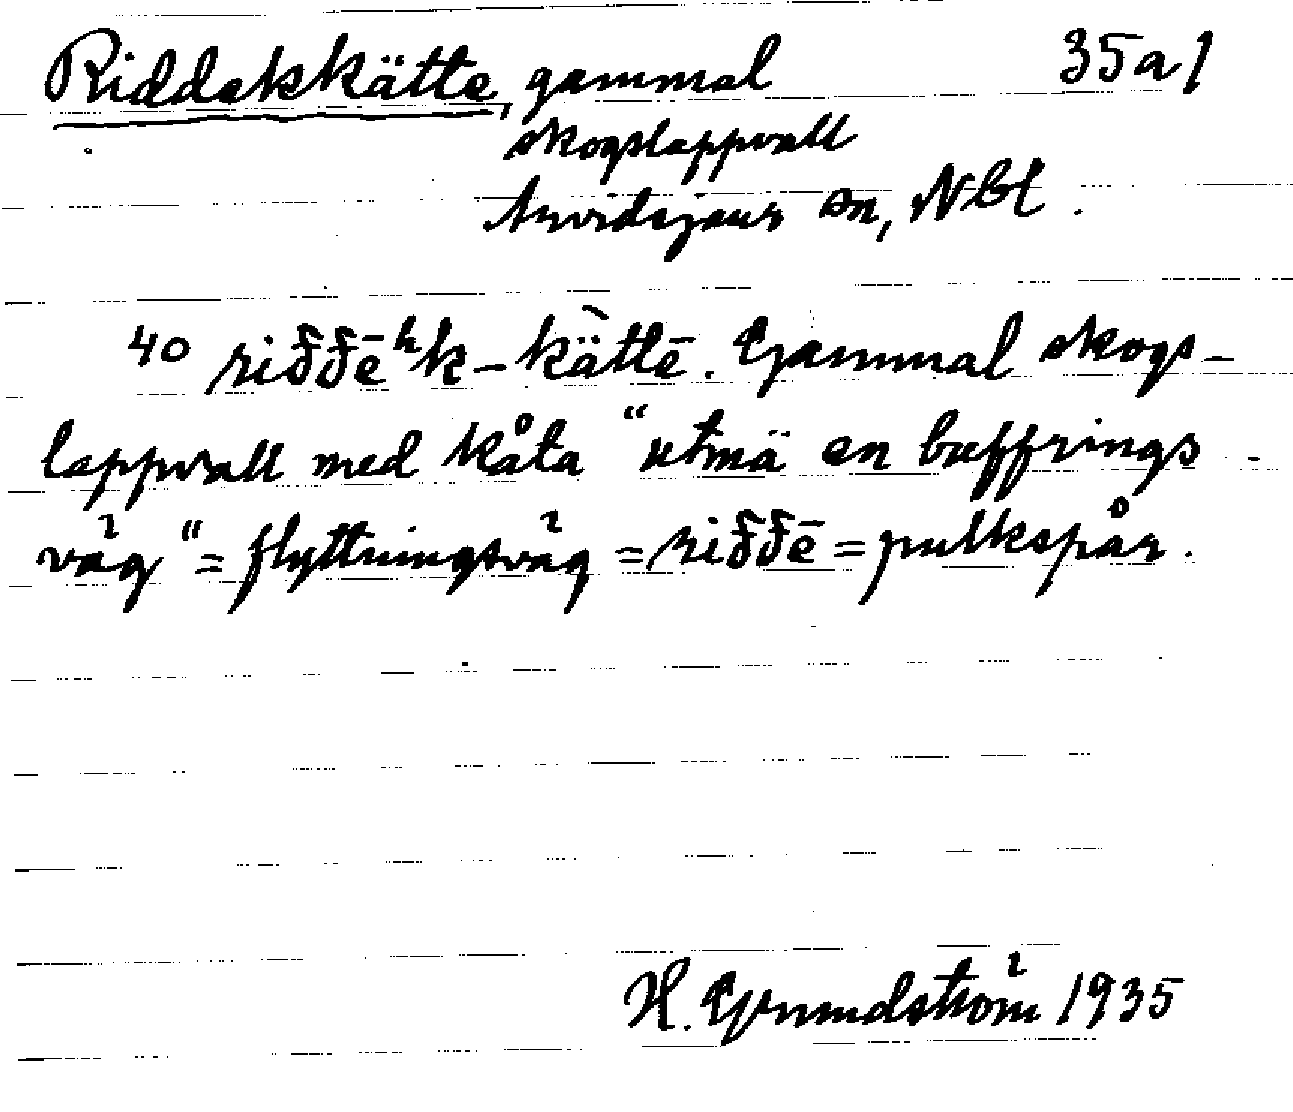 Riddekkätte, gammal 35a1
skogslappvall
Arvidsjaur sn, Nbl.
40 riđđē ʰk-kä̀ttē. Gammal skogs-
lappvall med kåta "utmä en bœffrings
väg" = flyttningsväg = riđđē = pulkspår.
H. Grundström 1935